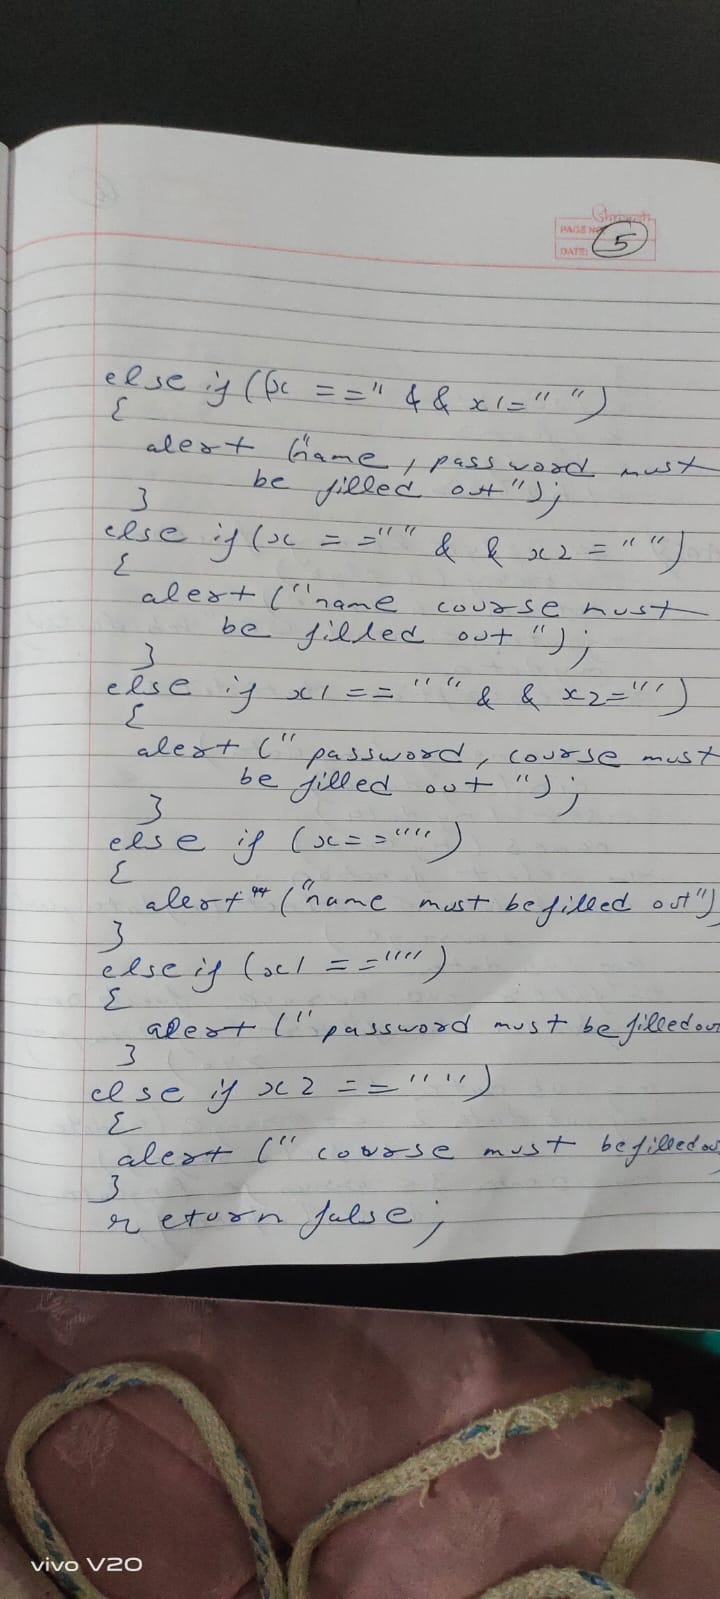 PAGE NO
5
DATE:
else if (x ==" && x1=" ")
{
alert ("name, password must
be filled out");
}
else if (x ==" " && x2=" ")
{
alert ("name course must
be filled out ");
}
else if x1 == " " && x2=" ")
{
alert (" password, course must
be filled out ");
}
else if (x==" ")
{
alert ("name must be filled out")
}
else if (x1 ==" ")
{
alert (" password must be filled ou
}
else if x2 ==" ")
{
alert (" course must be filled ou
}
return false;
vivo V20